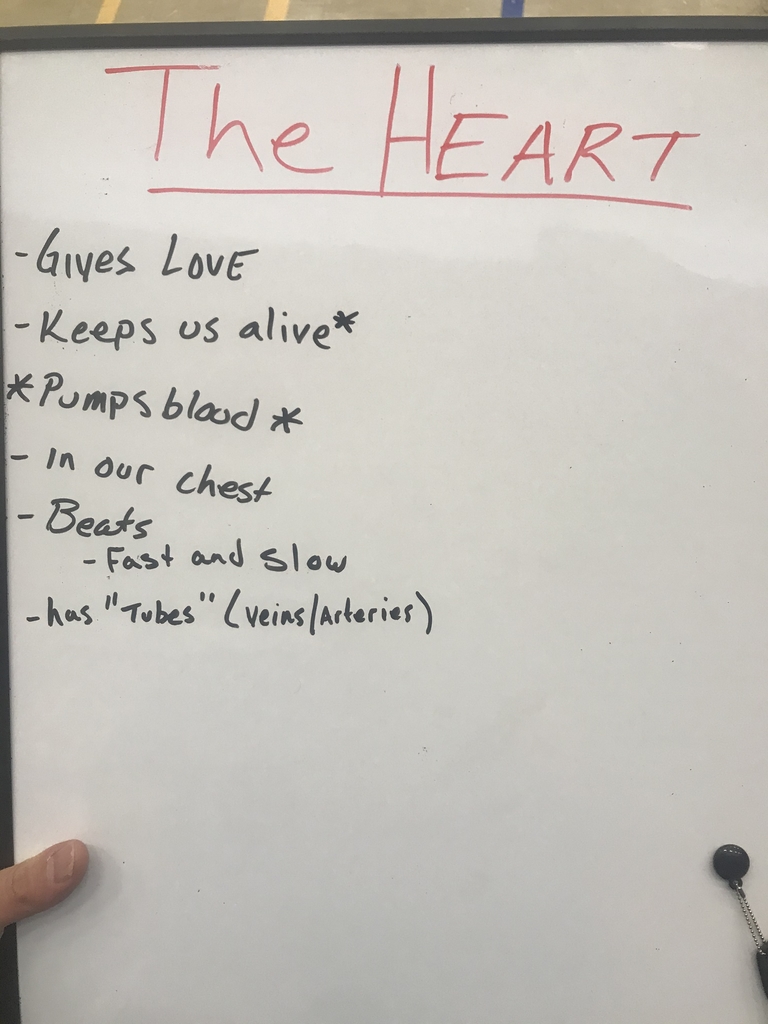 The HEART
- Gives LOVE
- Keeps us alive*
* Pumps blood *
- In our chest
- Beats
- Fast and slow
- has "Tubes" (Veins/Arteries)